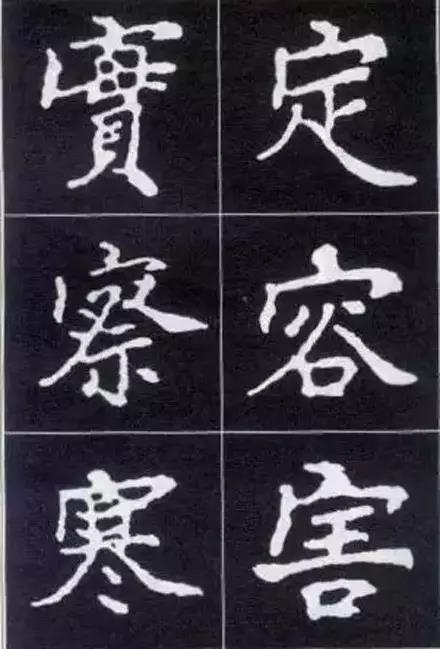 定容害
實察寒